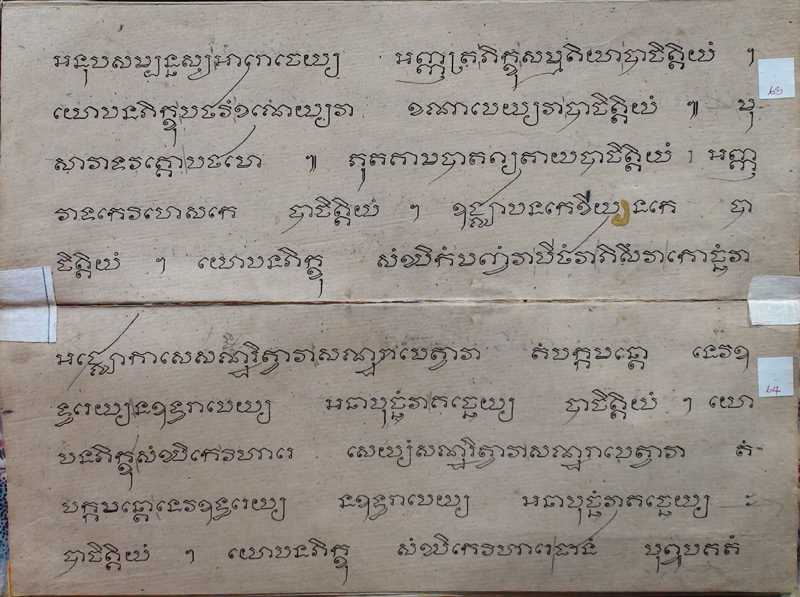 អនុបសម្បន្នស្សអារោចេយ្យ អញ្ញត្រភិក្ខុសម្មតិយាបាចិត្តិយំ ។
63
យោបនភិក្ខុបឋវឹខណេយ្យវា ខណាបេយ្យវាបាចិត្តិយំ ៕ មុ
សាវាទវគ្គោបឋមោ ៕ ភូតគាមបាតព្យតាយបាចិត្តិយំ ។ អញ្ញ
វាទកេវិហេសកេ បាចិត្តិយំ ។ ឧជ្ឈាបនកេខីយ្យនកេ បា
ចិត្តិយំ ។ យោបនភិក្ខុ សំឃិកំមញ្ចំវាបីឋំវាភិសឹវាកោច្ឆំវា
អជ្ឈោកាសេសណ្ឋរិត្វាវាសណ្ឋរាបេត្វាវា តំបក្កមន្តោ នេវឧ
64
ទ្ធរេយ្យនឧទ្ធរាបេយ្យ អនាបុច្ឆំវាគច្ឆេយ្យ បាចិត្តិយំ ។ យោ
បនភិក្ខុសំឃិកេវិហារេ សេយ្យំសណ្ឋរិត្វាវាសណ្ឋរាបេត្វាវា តំ
បក្កមន្តោនេវឧទ្ធរេយ្យ នឧទ្ធរាបេយ្យ អនាបុច្ឆំវាគច្ឆេយ្យ
បាចិត្តិយំ ។ យោបនភិក្ខុ សំឃិកេវិហារេជានំ បុព្វុបគតំ